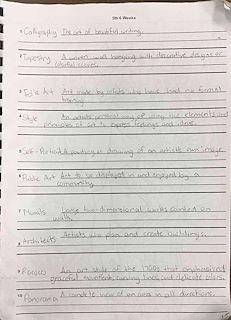 5th 6 Weeks
• Calligraphy The art of beautiful writing.
• Tapestry A woven wall hanging with decorative designs or
colorful scenes.
• Folk Art Art made by artists who have had no formal
training.
• Style An artist's personal way of using the elements and
principles of art to express feelings and ideas.
• Self-Portrait A painting or drawing of an artist's own image.
• Public Art Art to be displayed in and enjoyed by a
community.
• Murals Large two-dimensional works painted on
walls.
• Architects Artists who plan and create buildings.
• Rococo An art style of the 1700s that emphasized
graceful movement, curving lines, and delicate colors.
• Panorama A complete view of an area in all directions.